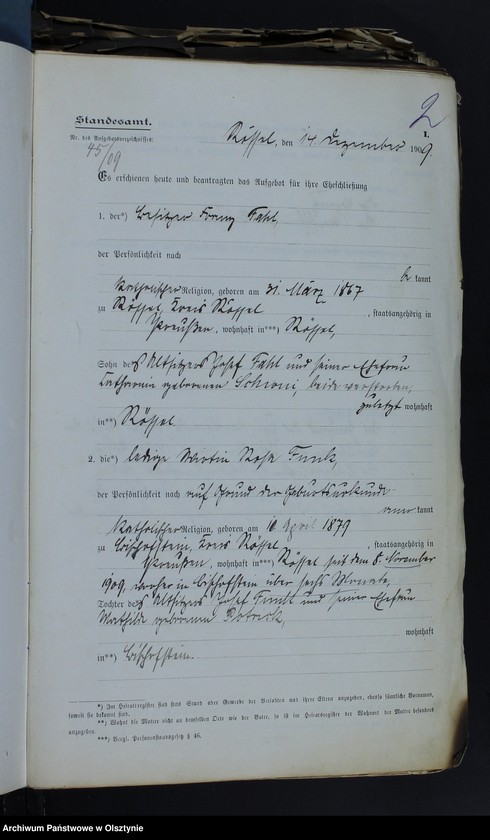 2
Standesamt.
Nr. des Aufgebotsverzeichnisses:
45/09
I.
Rössel, den 14 Dezember 1909.
Es erschienen heute und beantragten das Aufgebot für ihre Eheschließung
1. der*) Besitzer Franz Fahl,
der Persönlichkeit nach
be kannt
katholischer Religion, geboren am 31. März 1867
zu Rössel, Kreis Rössel, staatsangehörig in
Preußen, wohnhaft in***) Rössel,
Sohn des Altsitzers Josef Fahl und seiner Ehefrau
Katharina geborenen, beide verstorben,
zuletzt wohnhaft
in**) Rössel
2. die*) ledige Rosa Funk,
der Persönlichkeit nach auf Grund der Geburtsurkunde
aner kannt
katholischer Religion, geboren am April 1879
zu Bischofstein, Kreis Rössel, staatsangehörig in
Preußen, wohnhaft in***) Rössel seit dem 8. November
1909, vorher in Bischofstein über sechs Monate,
Tochter des Altsitzers Josef Funk und seiner Ehefrau
Mathilde geborenen
wohnhaft
in**) Bischofstein.
*) Im Heiratsregister sind stets Stand oder Gewerbe der Verlobten und ihrer Eltern anzugeben, ebenso sämtliche Vornamen,
soweit sie bekannt sind.
**) Wohnt die Mutter nicht an demselben Orte wie der Vater, so ist im Heiratsregister der Wohnort der Mutter besonders
anzugeben.
***) Vergl. Personenstandsgesetz § 46.
Archiwum Państwowe w Olsztynie